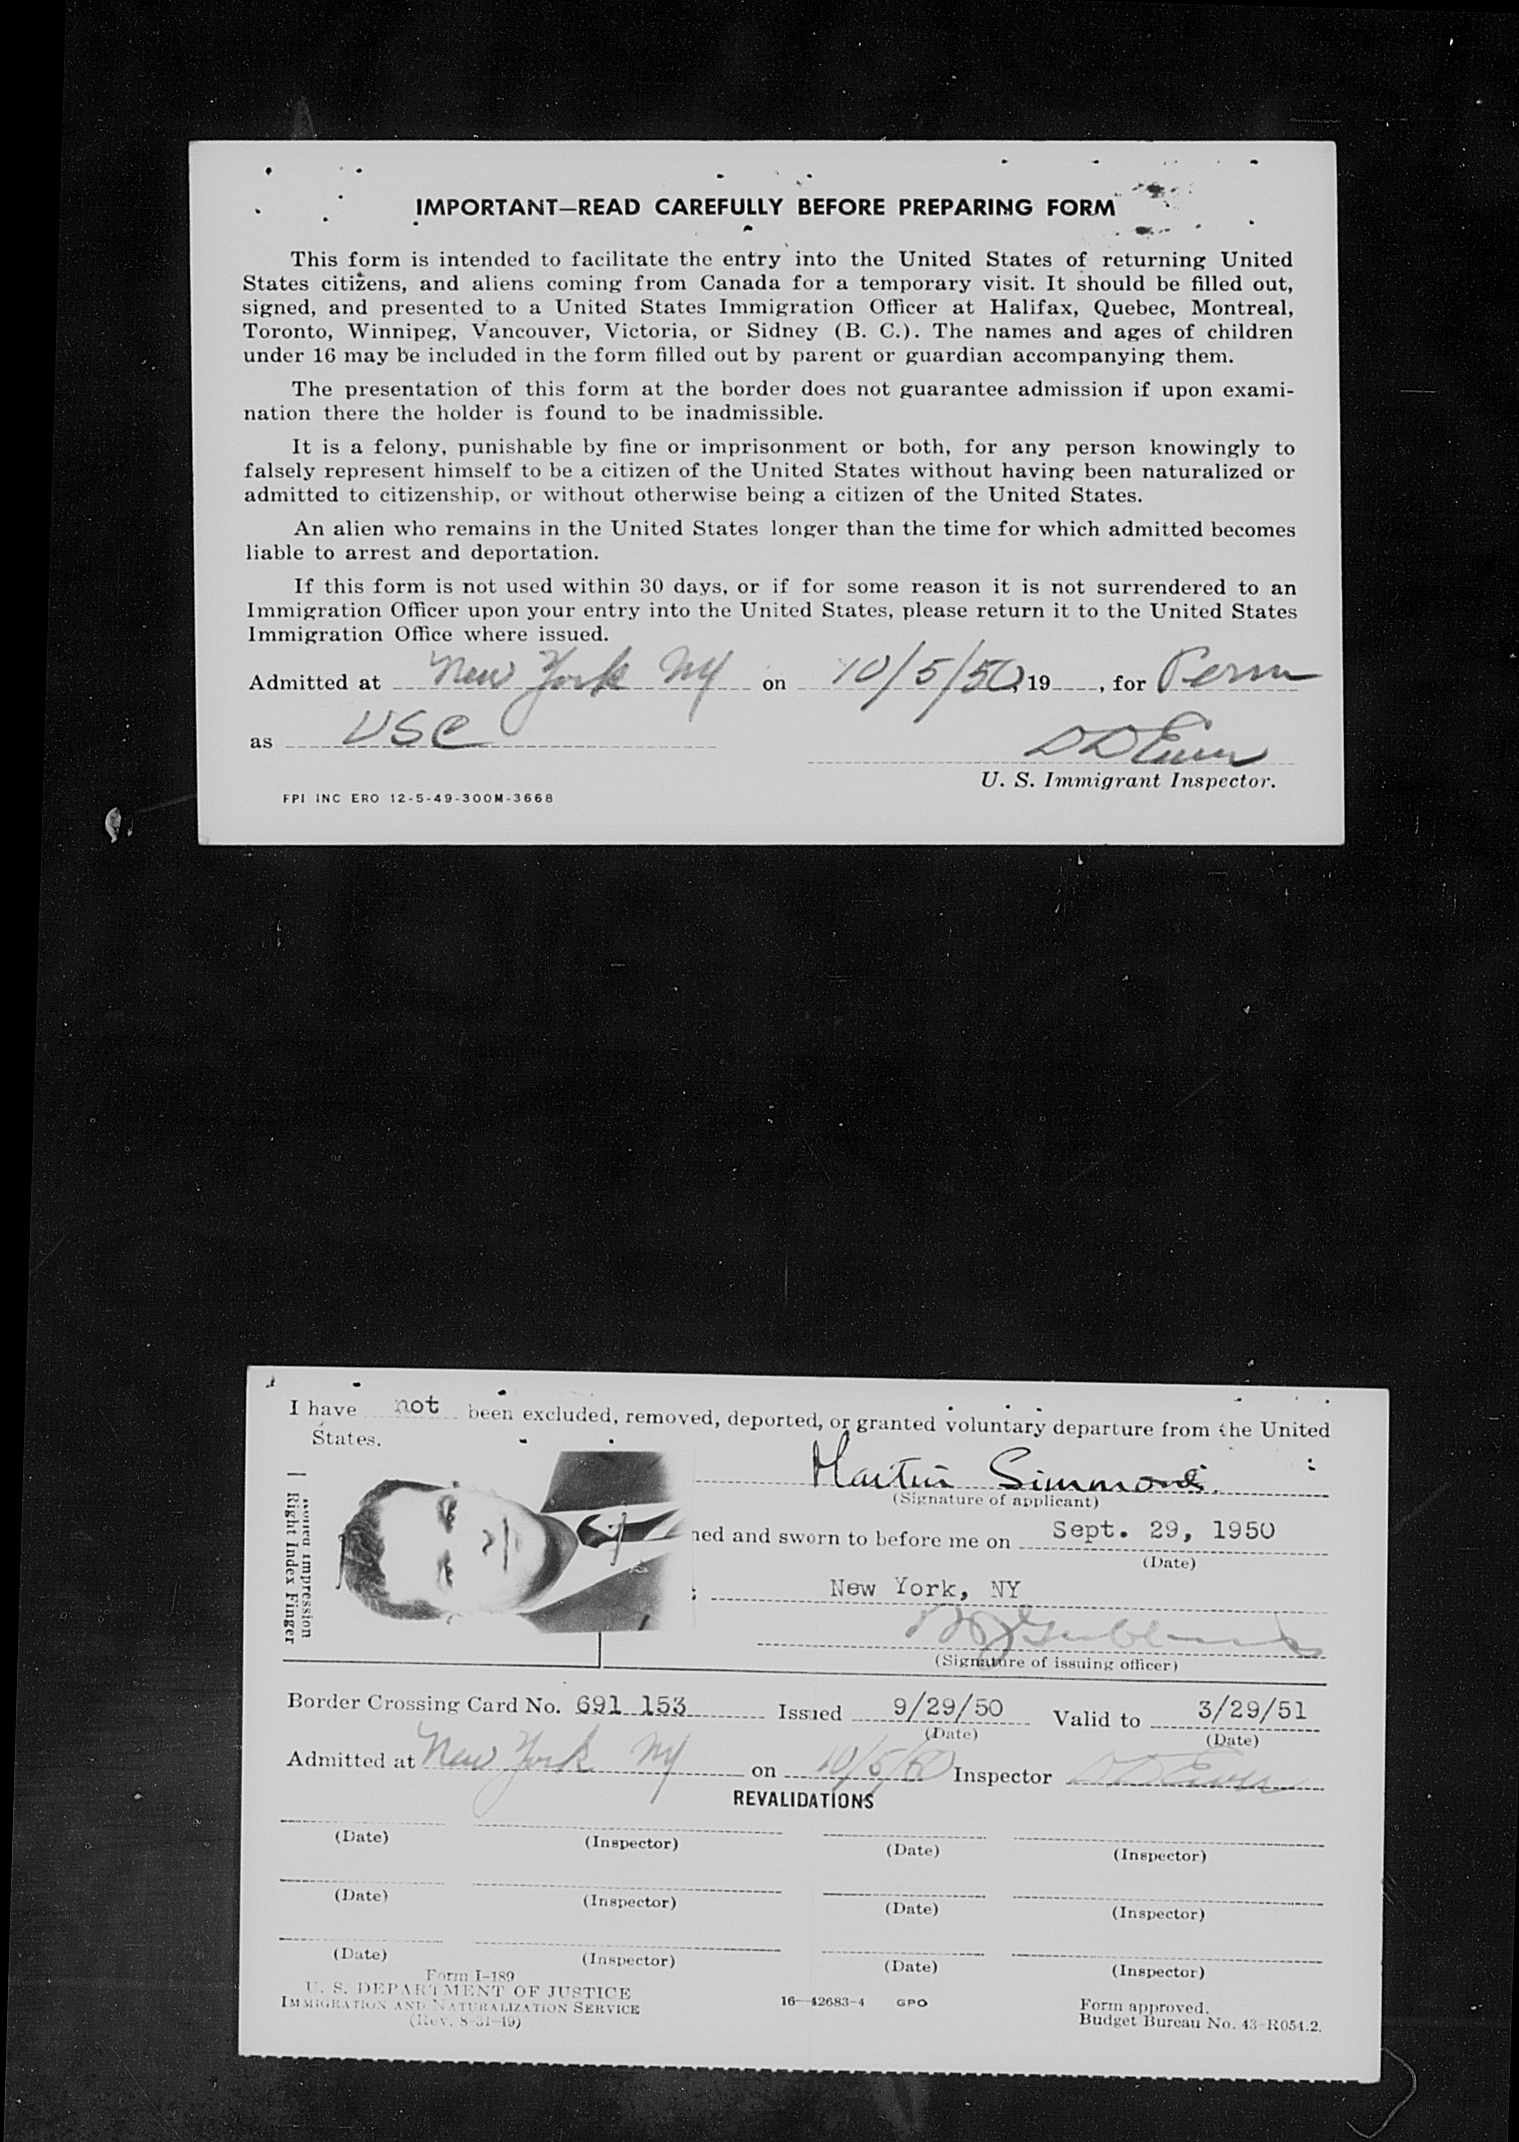 IMPORTANT—READ CAREFULLY BEFORE PREPARING FORM
This form is intended to facilitate the entry into the United States of returning United
States citizens, and aliens coming from Canada for a temporary visit. It should be filled out,
signed, and presented to a United States Immigration Officer at Halifax, Quebec, Montreal,
Toronto, Winnipeg, Vancouver, Victoria, or Sidney (B. C.). The names and ages of children
under 16 may be included in the form filled out by parent or guardian accompanying them.
The presentation of this form at the border does not guarantee admission if upon exami-
nation there the holder is found to be inadmissible.
It is a felony, punishable by fine or imprisonment or both, for any person knowingly to
falsely represent himself to be a citizen of the United States without having been naturalized or
admitted to citizenship, or without otherwise being a citizen of the United States.
An alien who remains in the United States longer than the time for which admitted becomes
liable to arrest and deportation.
If this form is not used within 30 days, or if for some reason it is not surrendered to an
Immigration Officer upon your entry into the United States, please return it to the United States
Immigration Office where issued.
Admitted at New York NY on 10/5/50, 19 , for Perm
as USC
U. S. Immigrant Inspector.
FPI INC ERO 12-5-49-300M-3668
I have not been excluded, removed, deported, or granted voluntary departure from the United
States.
Martin Simmons.
(Signature of applicant)
ned and sworn to before me on Sept. 29, 1950
(Date)
New York, NY
(Signature of issuing officer)
impression
Right Index Finger
Border Crossing Card No. 691 153 Issued 9/29/50 Valid to 3/29/51
(Date) (Date)
Admitted at New York NY on 10/5/50 Inspector
REVALIDATIONS
(Date) (Inspector) (Date) (Inspector)
(Date) (Inspector) (Date) (Inspector)
(Date) (Inspector) (Date) (Inspector)
Form I-189
U. S. DEPARTMENT OF JUSTICE
IMMIGRATION AND NATURALIZATION SERVICE
(Rev. 8-31-49)
16—42683-4 GPO
Form approved.
Budget Bureau No. 43-R054.2.